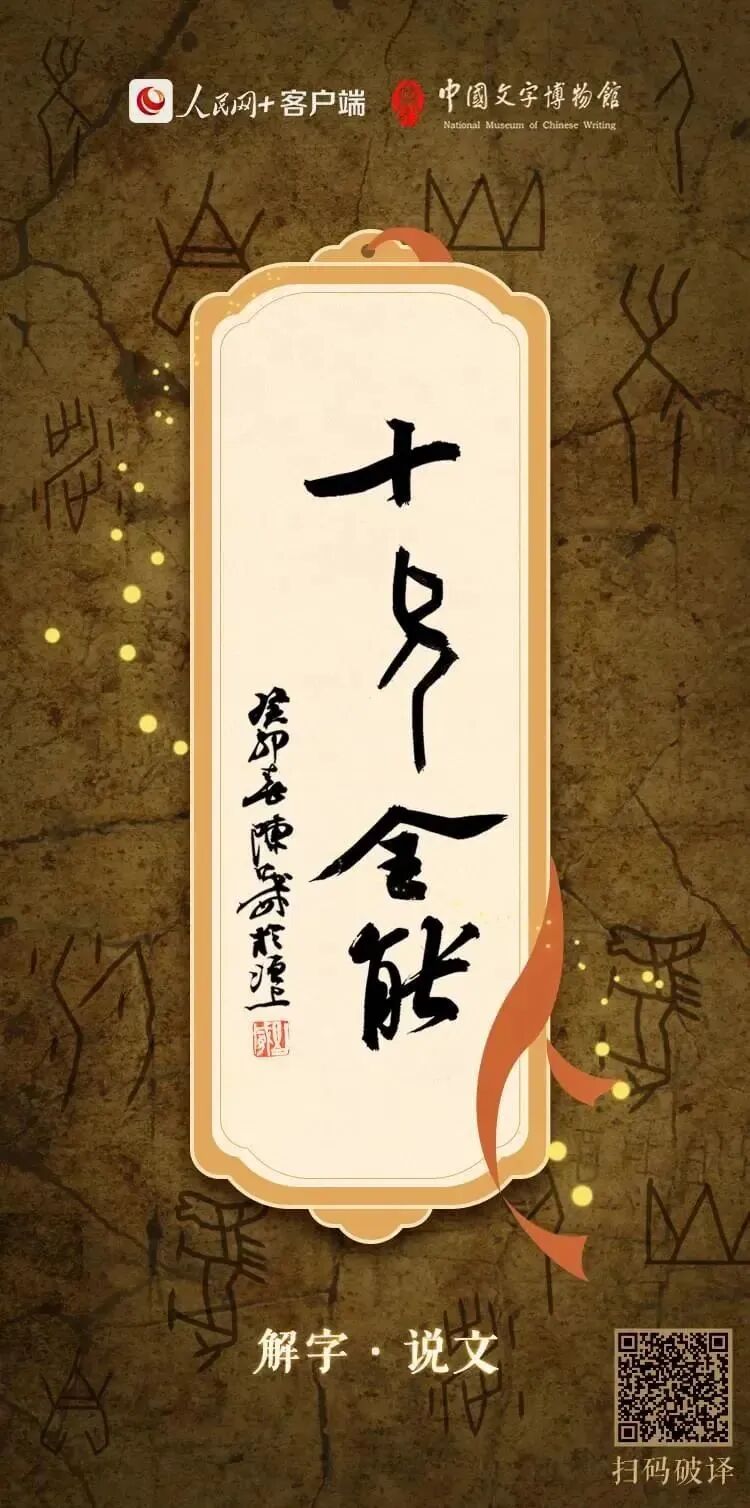 人民网+客户端
中國文字博物館
National Museum of Chinese Writing
十全能
癸卯春陳於洹上
解字·说文
扫码破译